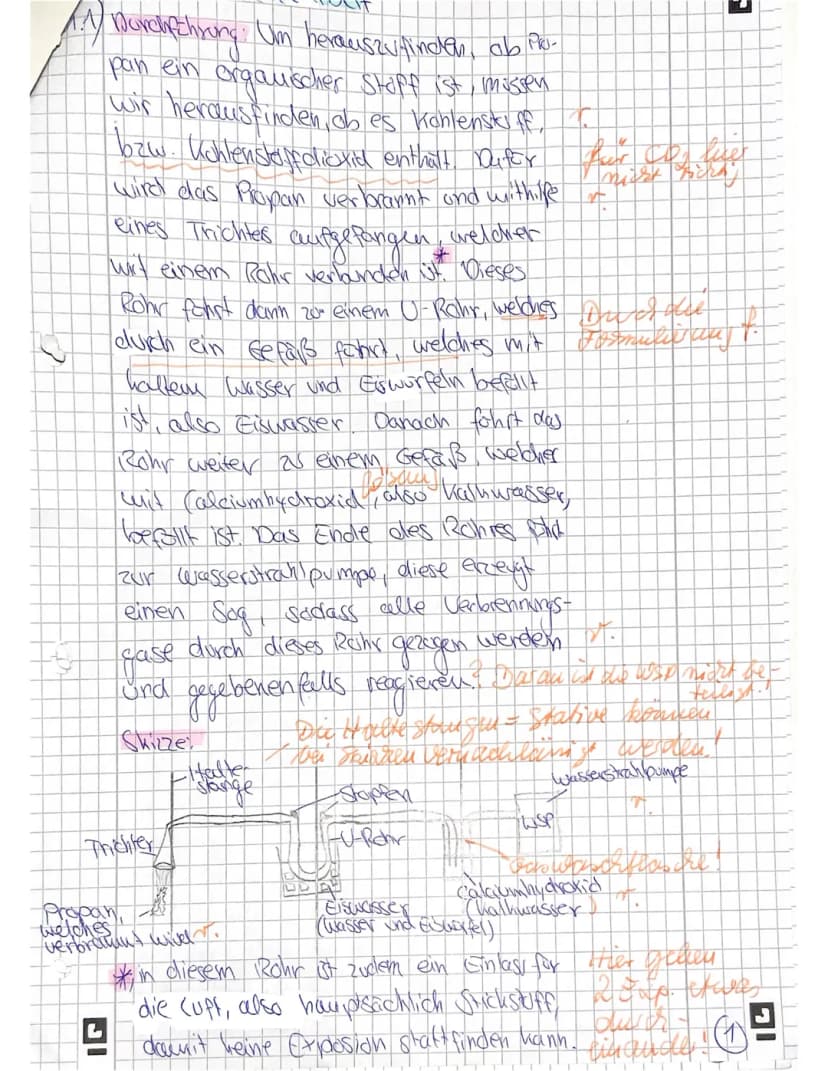 1.1) Durchführung: Um herauszufinden, ob Pro-
pan ein organischer Stoff ist, müssen
wir herausfinden, ob es Kohlenstoff, r.
bzw. Kohlenstoffdioxid enthält. Dafür für CO2 hier
nicht richtig
wird das Propan verbrannt und mithilfe r.
eines Trichtes aufgefangen, welcher
mit einem Rohr verbunden ist.* Dieses
Rohr führt dann zu einem U-Rohr, welches Durch die
durch ein Gefäß führt, welches mit Formulierung f.
kaltem Wasser und Eiswürfeln befüllt
ist, also Eiswasser. Danach führt das
Rohr weiter zu einem Gefäß, welcher
lösung
mit Calciumhydroxid, also Kalkwasser,
befüllt ist. Das Ende des Rohres führt
zur Wasserstrahlpumpe, diese erzeugt
einen Sog, sodass alle Verbrennungs-
gase durch dieses Rohr gezogen werden r.
und gegebenenfalls reagieren.? Daran ist die WSP nicht be-
teiligt!
Die Haltestangen = Stative können
Skizze: bei Skizzen vernachlässigt werden!
Halte-
stange
Wasserstrahlpumpe
r.
Stopfen
WSP
Trichter
U-Rohr
Gaswaschflasche!
Calciumhydroxid
(Kalkwasser) r.
Propan,
welches
verbrannt wird r.
Eiswasser
(Wasser und Eiswürfel)
*in diesem Rohr ist zudem ein Einlass für Hier gehen
die Luft, also hauptsächlich Stickstoff, 2 Exp. etwas
durch-
damit keine Explosion stattfinden kann. einander! 1